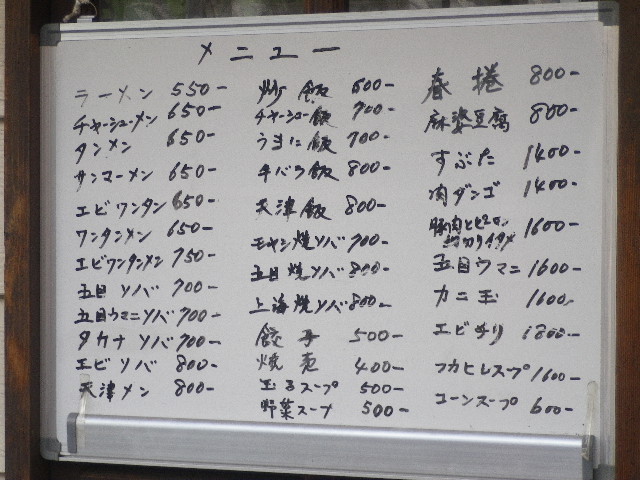 メニュー
ラーメン 550-
チャーシューメン 650-
タンメン 650-
サンマーメン 650-
エビワンタン 650-
ワンタンメン 650-
エビワンタンメン 750-
五目ソバ 700-
五目ウマニソバ 700-
タカナソバ 700-
エビソバ 800-
天津メン 800-
炒飯 600-
チャーシュー飯 700-
うまに飯 700-
牛バラ飯 800-
天津飯 800-
モヤシ焼ソバ 700-
五目焼ソバ 800-
上海焼ソバ 800-
餃子 500-
焼売 400-
玉子スープ 500-
野菜スープ 500-
春捲 800-
麻婆豆腐 800-
すぶた 1400-
肉ダンゴ 1400-
豚肉とピーマン
細切りイタメ 1600-
五目ウマニ 1600-
カニ玉 1600-
エビチリ 1800-
フカヒレスープ 1600-
コーンスープ 600-